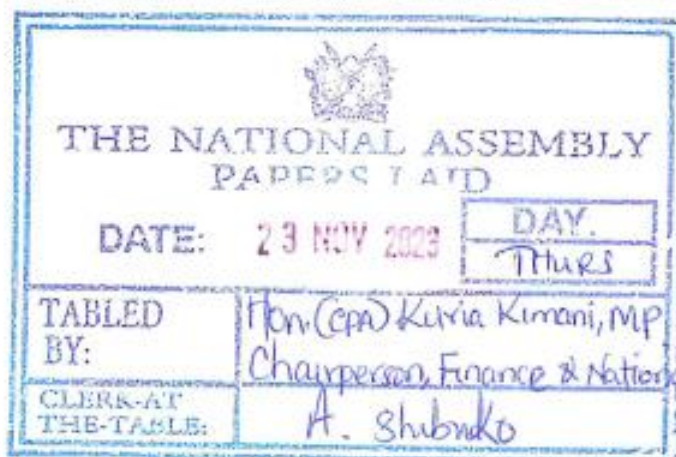 THE NATIONAL ASSEMBLY
PAPERS LAID
DATE: 23 NOV 2023
DAY.
THURS
TABLED BY:
Hon. (CPA) Kuria Kimani, MP
Chairperson, Finance & Nation
CLERK-AT THE-TABLE:
A. Shibuko